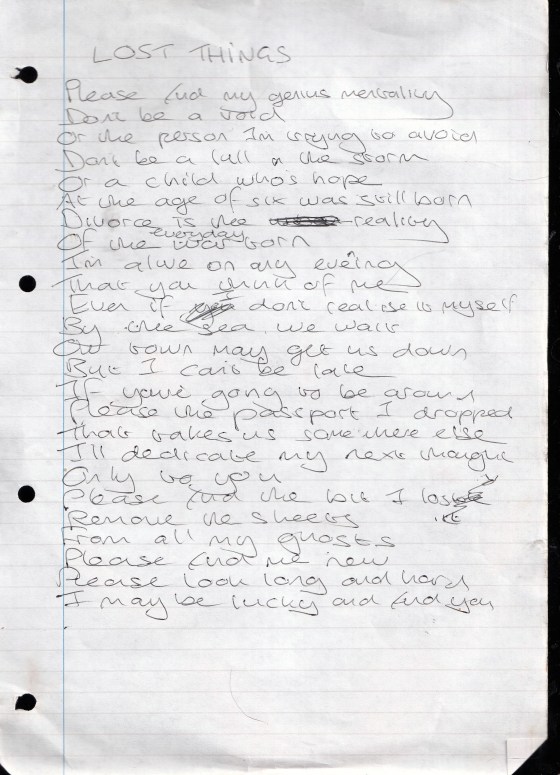 LOST THINGS
Please find my genius mentality
Dont be a void
Or the person Im trying to avoid
Dont be a lull in the storm
Or a child who's hope
At the age of six was still born
Divorce is the reality
Of the everyday born
I'm alive on any evening
That you think of me
Even if I dont realise it myself
By the sea we wait
Our town may get us down
But I can't be late
If you're going to be around
Please the passport I dropped
That takes us somewhere else
I'll dedicate my next thought
Only to you
Please find the lot I lost
Remove the sheets
From all my ghosts
Please find me new
Please look long and hard
I may be lucky and find you